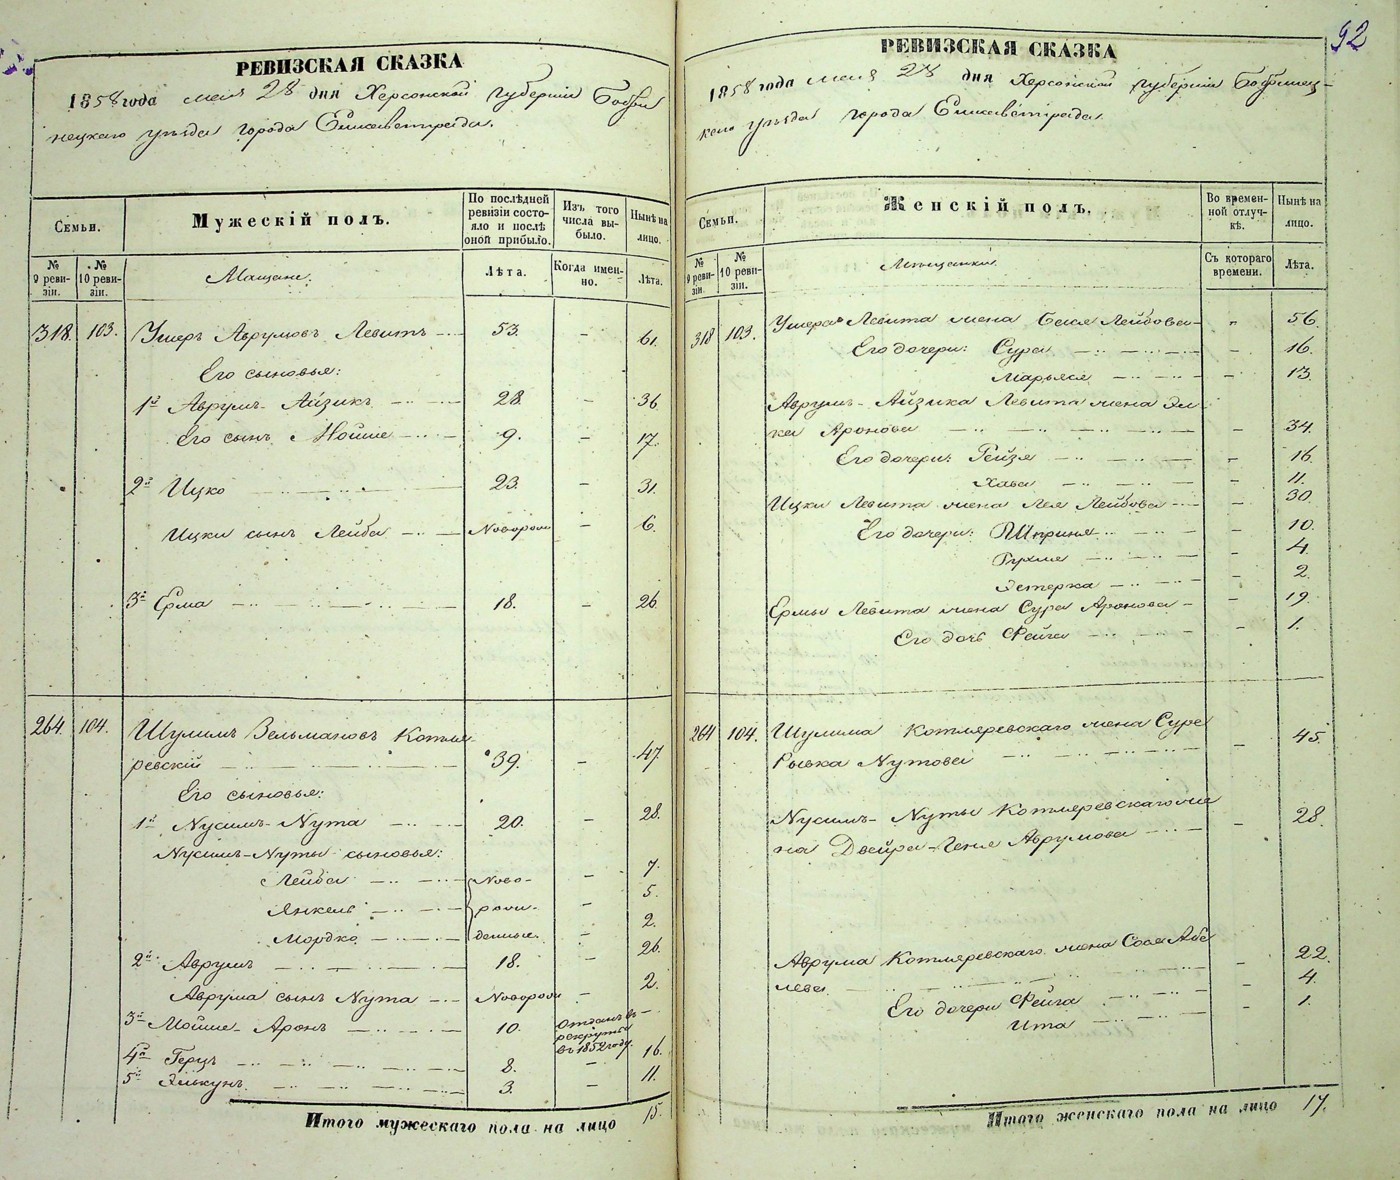 92
РЕВИЗСКАЯ СКАЗКА
1858 года мая 28 дня Херсонской губерніи Бобри
нецкаго уѣзда города Елисаветграда.
Семьи.
Мужескій полъ.
По послѣдней ревизіи состояло и послѣ оной прибыло.
Изъ того числа выбыло.
Нынѣ на лицо.
№ 9 ревизіи.
№ 10 ревизіи.
Мѣщане.
Лѣта.
Когда именно.
Лѣта.
318. 103. Умеръ Аврумовъ Левитъ 53. 61.
Его сыновья:
1й Аврумъ-Айзикъ 28. – 36
Его сынъ Мойше 9. – 17.
2й Ицко 23. – 31.
Ицки сынъ Лейба Новорож – 6.
3й Ерма 18. – 26.
264. 104. Шулимъ Зельмановъ Котля
ревскій 39. – 47
Его сыновья:
1й Нусимъ-Нута 20. – 28.
Нусимъ-Нуты сыновья:
Лейба Ново- – 7.
Янкель рож- – 5.
Мордко денные. – 2.
2й Аврумъ 18. – 26.
Аврума сынъ Нута Новорож – 2.
3й Мойше-Аронъ 10. Отданъ въ рекруты въ 1852 году. –
4й Герцъ 8. – 16.
5й Элькунъ 3. – 11.
Итого мужескаго пола на лицо 15.
РЕВИЗСКАЯ СКАЗКА
1858 года мая 28 дня Херсонской губерніи Бобринец-
каго уѣзда города Елисаветграда
Семьи.
Женскій полъ.
Во временной отлучкѣ.
Нынѣ на лицо.
№ 9 ревизіи.
№ 10 ревизіи.
Мѣщанки.
Съ котораго времени.
Лѣта.
318 103. Умера Левита жена Бася Лейбова – „ 56.
Его дочери: Сура – 16.
Марьяся – 13.
Аврумъ-Айзика Левита жена Эл
ка Аронова – 34.
Его дочери: Рейзя – 16
Хава – 11.
Ицки Левита жена Лея Лейбова – 30.
Его дочери: Шприня – 10.
Рухля – 4.
Эстерка – 2.
Ермы Левита жена Сура Аронова – 19.
Его дочь Фейга – 1.
264 104. Шулима Котляревскаго жена Суре
Рывка Нутова – 45.
Нусимъ-Нуты Котляревскаго же
на Двейра-Геня Аврумова – 28.
Аврума Котляревскаго жена Сося Абе
лева – 22.
Его дочери Фейга – 4.
Ита – 1.
Итого женскаго пола на лицо 17.